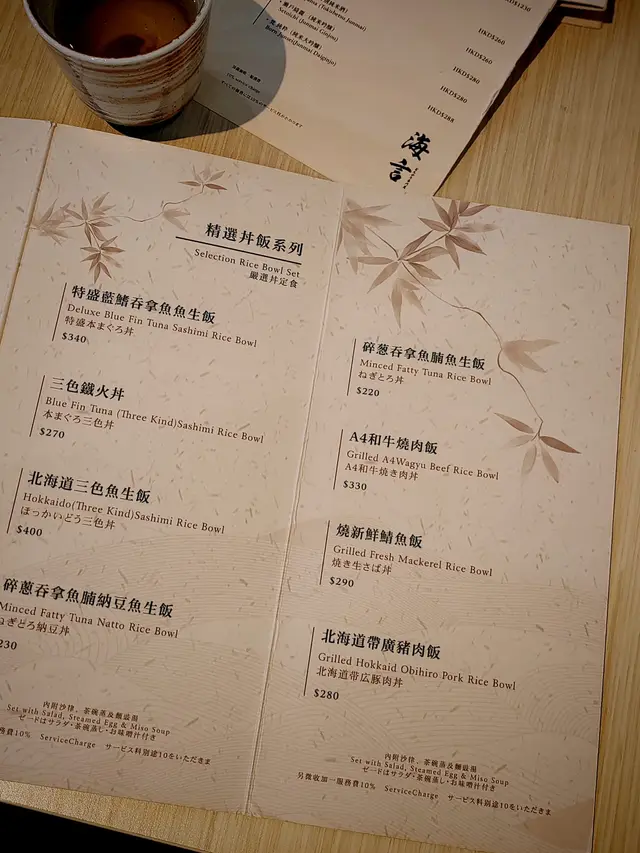 HKD$1230
(Tokubetsu Junmai)
HKD$260
Junmai Ginjo)
HKD$260
(Junmai Daiginjo)
HKD$280
HKD$280
HKD$288
10% service charge
海言
精選丼飯系列
Selection Rice Bowl Set
厳選丼定食
特盛藍鰭吞拿魚魚生飯
Deluxe Blue Fin Tuna Sashimi Rice Bowl
特盛本まぐろ丼
$340
三色鐵火丼
Blue Fin Tuna (Three Kind)Sashimi Rice Bowl
本まぐろ三色丼
$270
北海道三色魚生飯
Hokkaido(Three Kind)Sashimi Rice Bowl
ほっかいどう三色丼
$400
碎蔥吞拿魚腩納豆魚生飯
Minced Fatty Tuna Natto Rice Bowl
ねぎとろ納豆丼
230
內附沙律、茶碗蒸及麵豉湯
Set with Salad, Steamed Egg & Miso Soup
ゼードはサラダ・茶碗蒸し・お味噌汁付き
務費10% ServiceCharge サービス料別途10をいただきま
碎葱吞拿魚腩魚生飯
Minced Fatty Tuna Rice Bowl
ねぎとろ丼
$220
A4和牛燒肉飯
Grilled A4Wagyu Beef Rice Bowl
A4和牛焼き肉丼
$330
燒新鮮鯖魚飯
Grilled Fresh Mackerel Rice Bowl
焼き生さば丼
$290
北海道帶廣豬肉飯
Grilled Hokkaid Obihiro Pork Rice Bowl
北海道帯広豚肉丼
$280
內附沙律、茶碗蒸及麵豉湯
Set with Salad, Steamed Egg & Miso Soup
ゼードはサラダ・茶碗蒸し・お味噌汁付き
另徵收加一服務費10% ServiceCharge サービス料別途10をいただきま